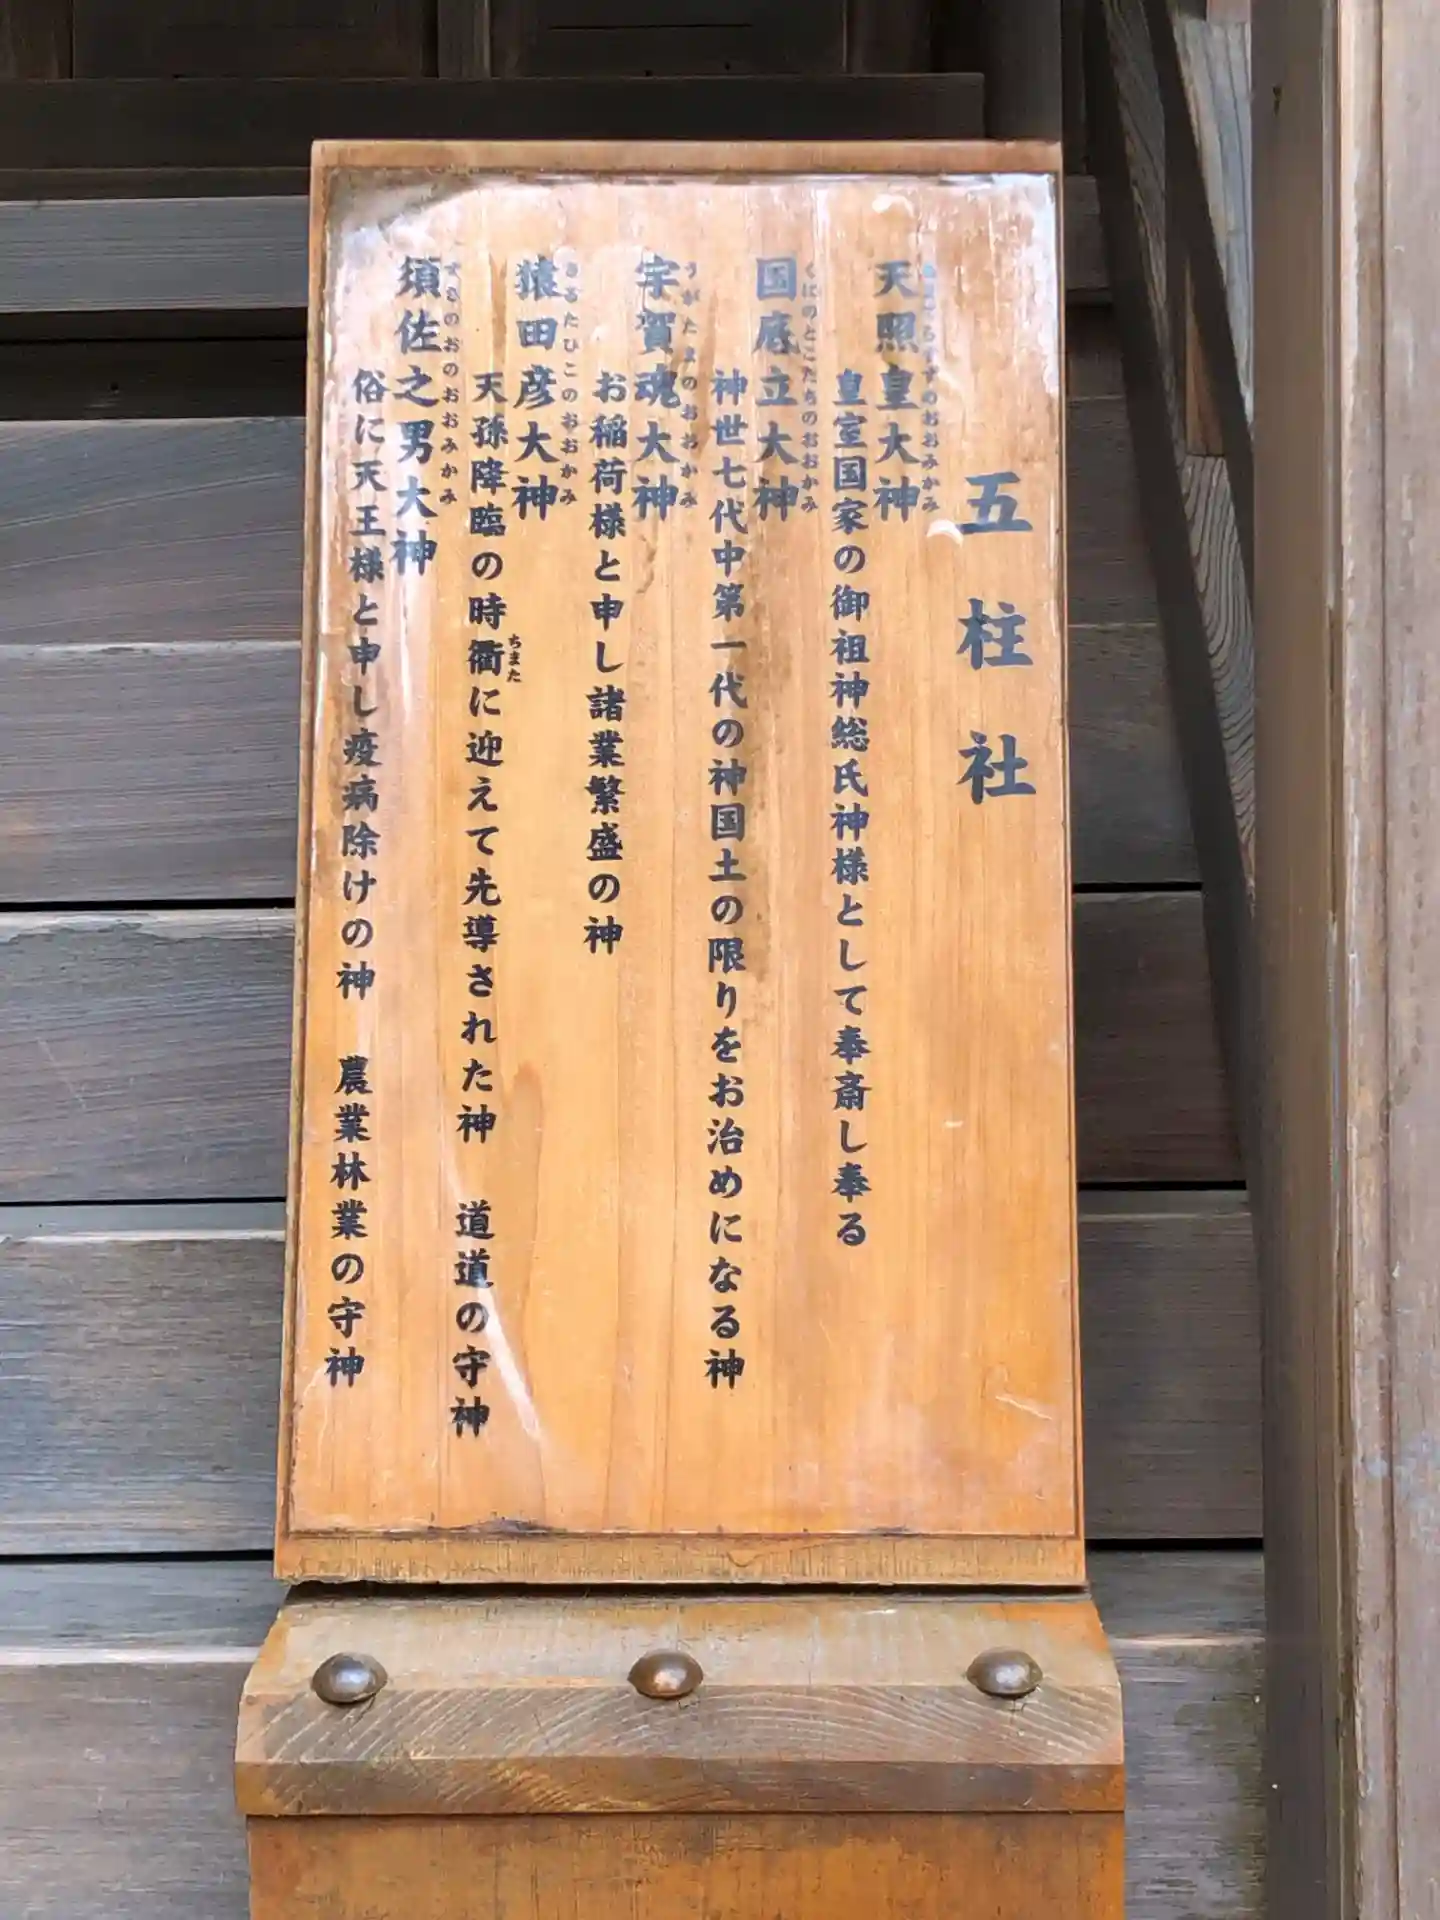 五柱社
天照皇大神
皇室国家の御祖神総氏神様として奉斎し奉る
くにのとこたちのおおかみ
国底立大神
神世七代中第一代の神国土の限りをお治めになる神
うがたまのおおかみ
宇賀魂大神
お稲荷様と申し諸業繁盛の神
さるたひこのおおかみ
猿田彦大神
ちまた
天孫降臨の時衢に迎えて先導された神　道道の守神
すさのおのおおみかみ
須佐之男大神
俗に天王様と申し疫病除けの神　農業林業の守神